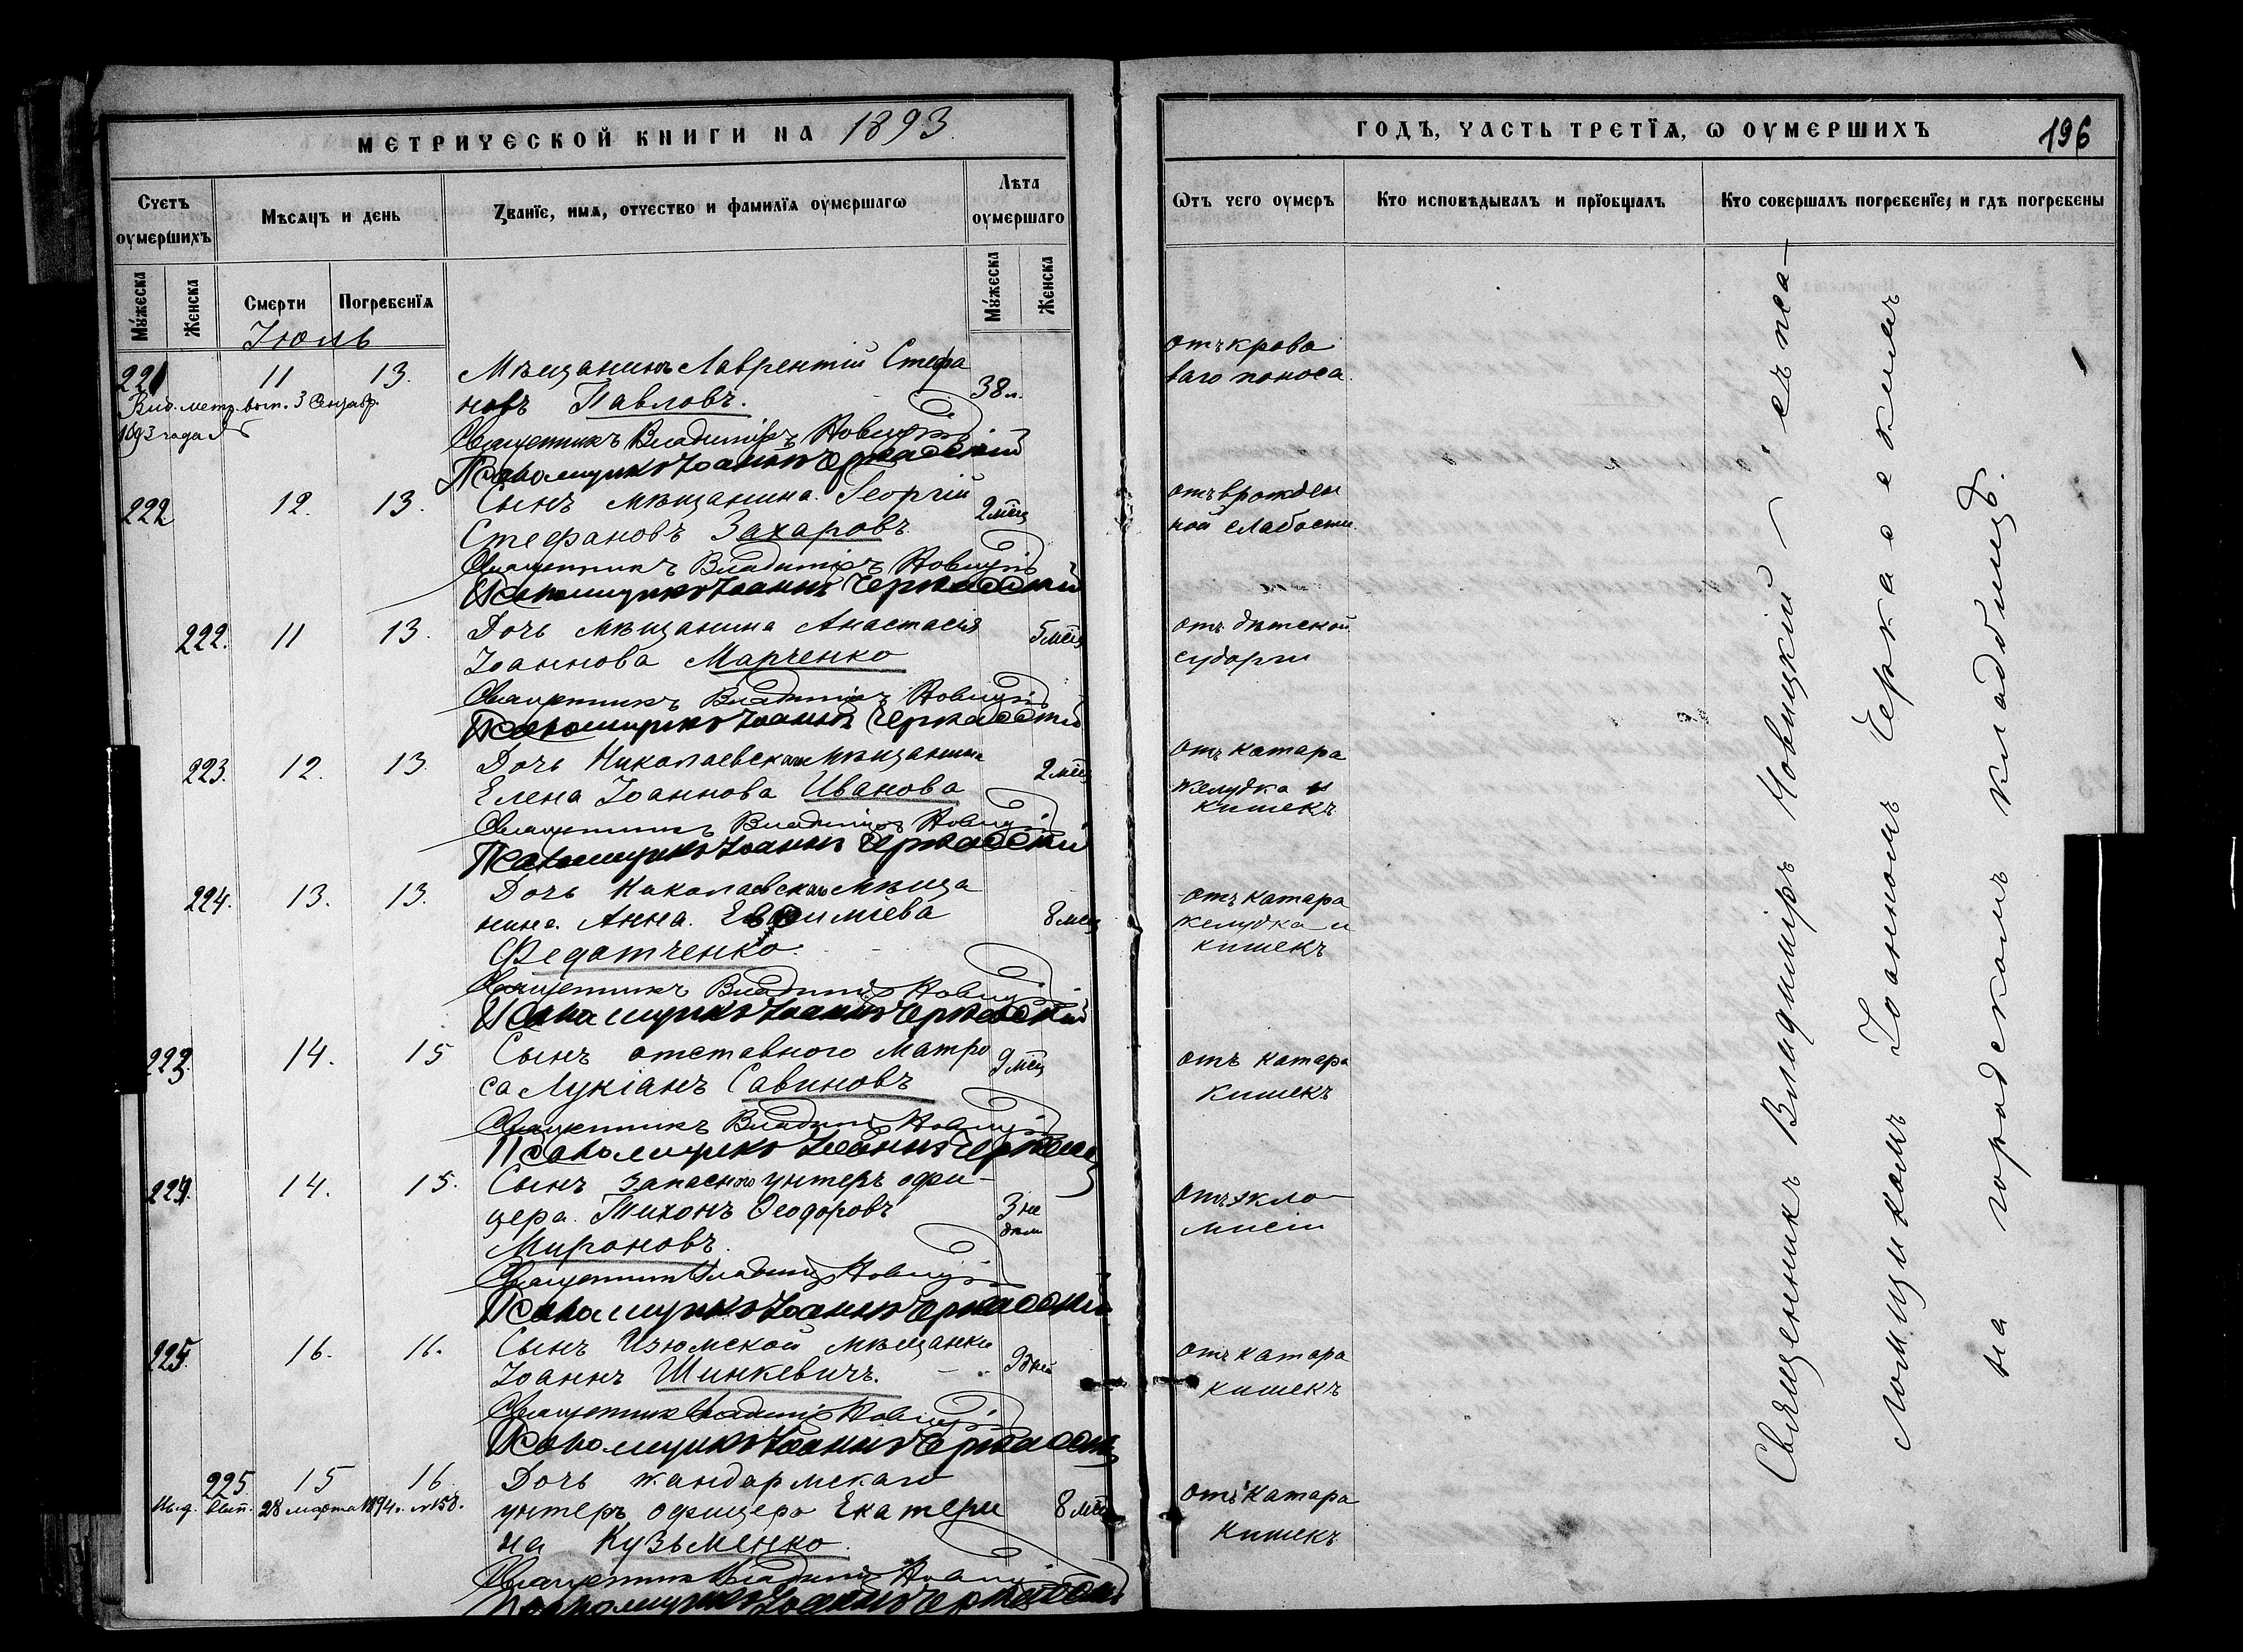 МЕТРИЧЕСКОЙ КНИГИ НА 1893
ГОДЪ, ЧАСТЬ ТРЕТЇѦ, Ѡ ОУМЕРШИХЪ
196
Счетъ оумершихъ
Мѣсѧцъ и день
Званїе, имѧ, отчество и фамилїѧ оумершагѡ
Лѣта оумершаго
Ѿтъ чего оумеръ
Кто исповѣдывалъ и прїобщалъ
Кто совершалъ погребенїе, и гдѣ погребены
Мужеска
Женска
Смерти
Погребенїѧ
Мужеска
Женска
Іюль
221 11 13. Мѣщанинъ Лаврентій Стефа
новъ Павловъ. 38 л.
отъ крова
ваго поноса.
Выд. метр. вып. 3
1893 года
Священникъ Владиміръ Новицкій
Псаломщикъ Іоаннъ Черкасскій
222 12. 13. Сынъ мѣщанина Георгій
Стефановъ Захаровъ. 2 мѣс
отъ врожден
ной слабости.
Священникъ Владиміръ Новицкій
Псаломщикъ Іоаннъ Черкасскій
222. 11 13. Дочь мѣщанина Анастасія
Іоаннова Марченко 5 мѣс
отъ дѣтской
судорги
Священникъ Владиміръ Новицкій
Псаломщикъ Іоаннъ Черкасскій
223. 12. 13. Дочь Николаевскаго мѣщанина
Елена Іоаннова Иванова 2 мѣс
отъ катара
желудка и
кишекъ
Священникъ Владиміръ Новицкій
Псаломщикъ Іоаннъ Черкасскій
224. 13. 13. Дочь Николаевскаго мѣща
нина Анна Евфиміева 8 мѣс
Федатченко.
отъ катара
желудка и
кишекъ
Священникъ Владиміръ Новицкій
Псаломщикъ Іоаннъ Черкасскій
223. 14. 15 Сынъ отставного матро
са Лукіанъ Савиновъ 9 мѣс
отъ катара
кишекъ
Священникъ Владиміръ Новицкій
Псаломщикъ Іоаннъ Черкасскій
224. 14. 15. Сынъ запаснаго унтеръ офи-
цера Тихонъ Ѳеодоровъ 3 не
дѣли
Мироновъ.
отъ экло-
мпсіи
Священникъ Владиміръ Новицкій
Псаломщикъ Іоаннъ Черкасскій
225. 16. 16. Сынъ Изюмской мѣщанки
Іоаннъ Шинкевичъ. 9 дней
отъ катара
кишекъ
Священникъ Владиміръ Новицкій
Псаломщикъ Іоаннъ Черкасскій
225. 15 16 Дочь жандармскаго
Выд. вып. 28 марта 1894 г. № 158.
унтеръ офицера Екатери 8 мѣс
на Кузьменко.
отъ катара
кишекъ
Священникъ Владиміръ Новицкій
Псаломщикъ Іоаннъ Черкасскій
Священникъ Владиміръ Новицкій съ пса-
ломщикомъ Іоанномъ Черкасскимъ
на городскомъ кладбищѣ.